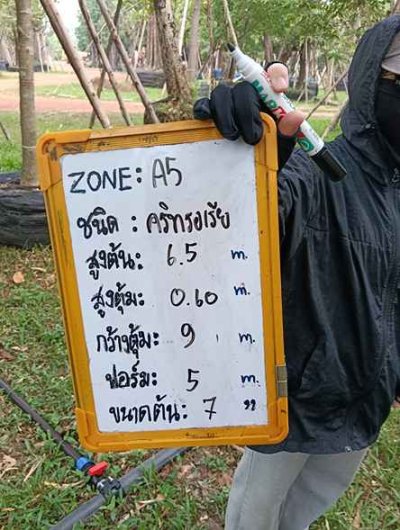 ZONE: A5
ชนิด : คริทรอเรีย
สูงต้น: 6.5 m.
สูงตุ้ม: 0.60 m.
กว้างตุ้ม: 9 m.
ฟอร์ม: 5 m.
ขนาดต้น: 7 "